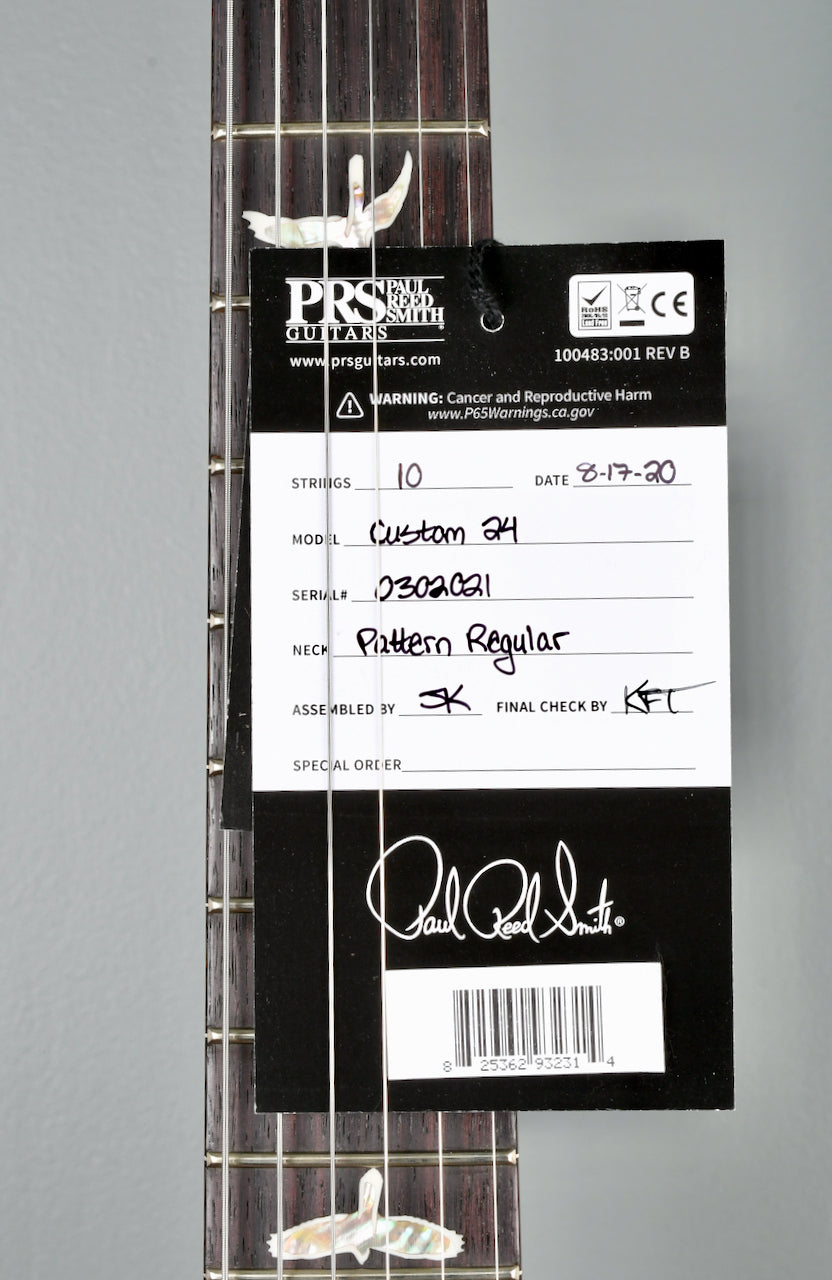 PRS PAUL REED SMITH
GUITARS
www.prsguitars.com
RoHS
Lead Free
CE
100483:001 REV B
WARNING: Cancer and Reproductive Harm
www.P65Warnings.ca.gov
STRINGS 10 DATE 8-17-20
MODEL Custom 24
SERIAL# 0302021
NECK Pattern Regular
ASSEMBLED BY SK FINAL CHECK BY KFT
SPECIAL ORDER
Paul Reed Smith®
8 25362 93231 4